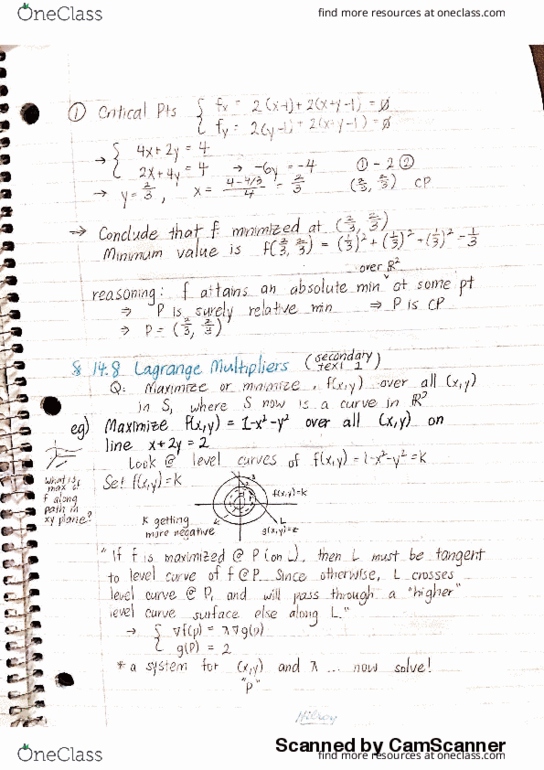 OneClass
find more resources at oneclass.com
① Critical Pts { fx = 2(x-1)+2(x+y-1)=0
fy = 2(y-1)+2(x+y-1)=0
→ { 4x+2y=4
2x+4y=4 → -6y=-4 ①-2②
→ y=2/3, x= (4-4/3)/4 = 2/3 (2/3, 2/3) CP
→ Conclude that f minimized at (2/3, 2/3)
Minimum value is f(2/3, 2/3) = (1/3)²+(1/3)²+(1/3)²=1/3
over ℝ²
reasoning: f attains an absolute min at some pt
⇒ P is surely relative min ⇒ P is CP
⇒ P=(2/3, 2/3)
§ 14.8 Lagrange Multipliers (secondary text 2)
Q: Maximize or minimize f(x,y) over all (x,y)
in S, where S now is a curve in ℝ²
eg) Maximize f(x,y)=1-x²-y² over all (x,y) on
line x+2y=2
Look @ level curves of f(x,y)=1-x²-y²=k
Set f(x,y)=k
What is max of f along path in xy plane?
f(x,y)=k
K getting
more negative
L
g(x,y)=2
"If f is maximized @ P (on L), then L must be tangent
to level curve of f @ P. Since otherwise, L crosses
level curve @ P, and will pass through a "higher"
level curve surface else along L."
→ { ∇f(p) = λ∇g(p)
g(P) = 2
* a system for (x,y) and λ ... now solve!
"P"
Hilroy
Scanned by CamScanner
OneClass
find more resources at oneclass.com